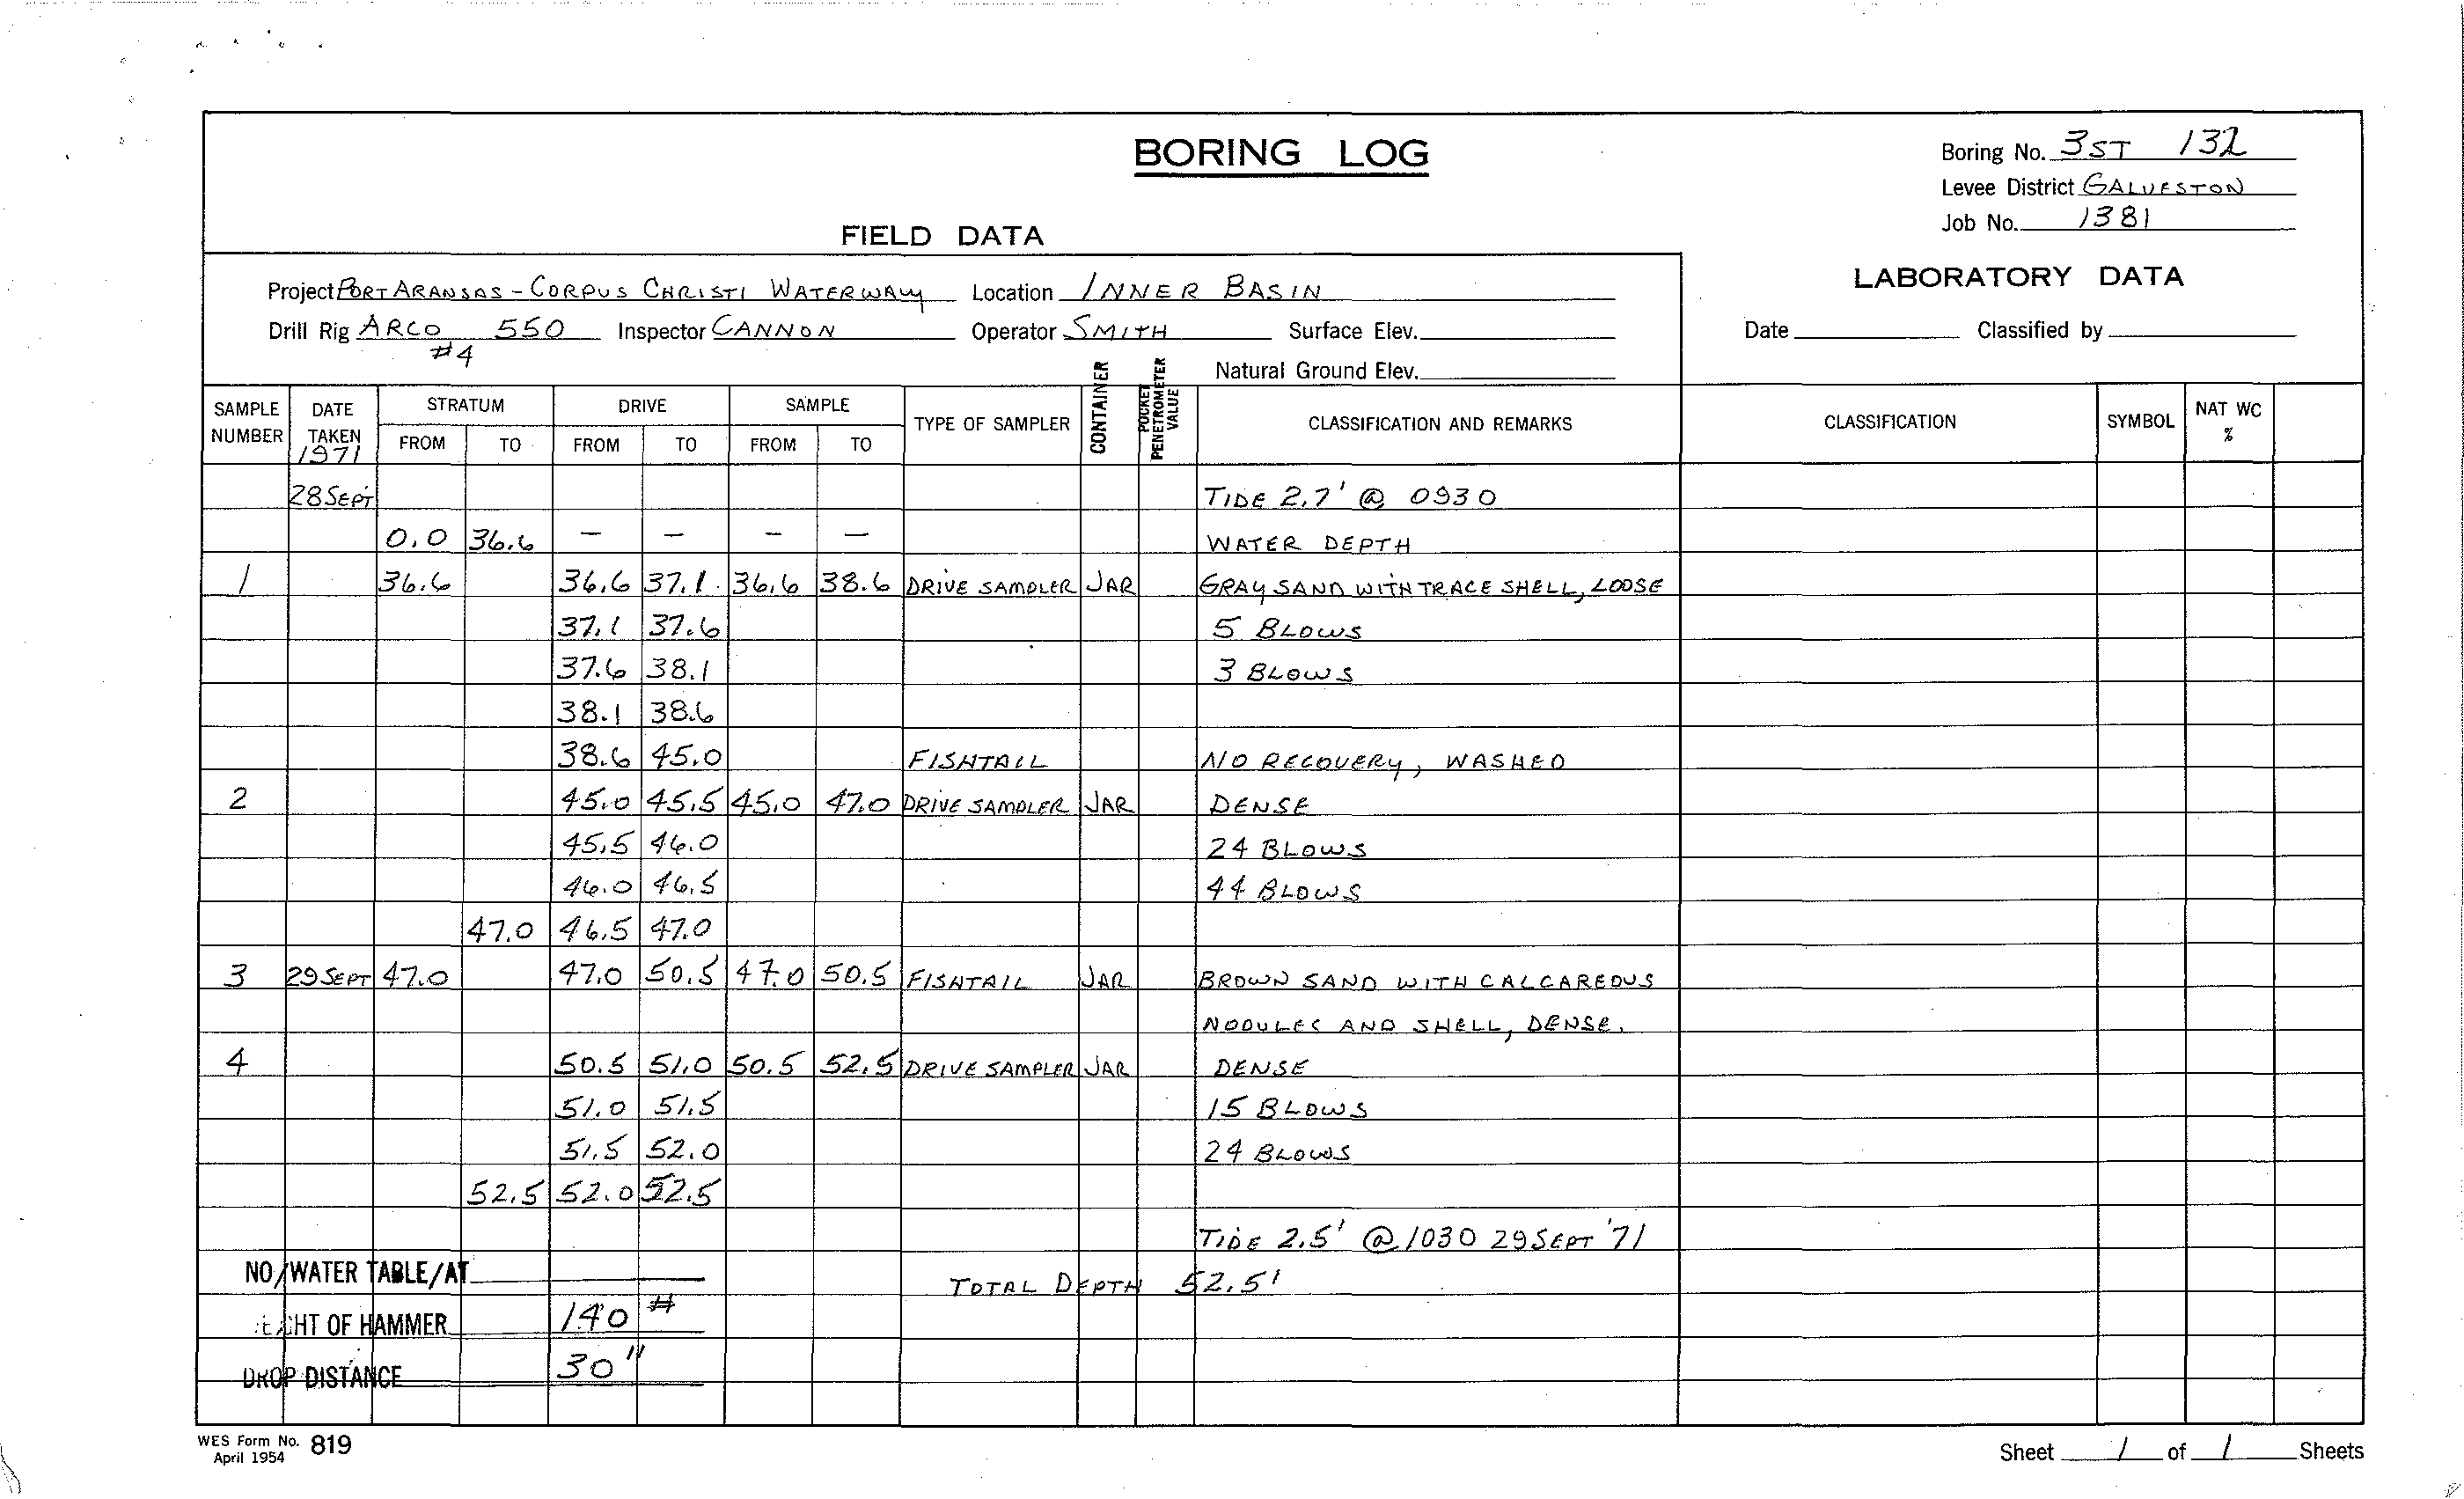 BORING LOG
Boring No. 3ST 132
Levee District GALVESTON
Job No. 1381
FIELD DATA
LABORATORY DATA
Project PORT ARANSAS - CORPUS CHRISTI WATERWAY Location INNER BASIN
Drill Rig ARCO 550 Inspector CANNON Operator SMITH Surface Elev. Date Classified by
#4
Natural Ground Elev.
SAMPLE NUMBER DATE TAKEN 1971 STRATUM FROM TO DRIVE FROM TO SAMPLE FROM TO TYPE OF SAMPLER CONTAINER POCKET PENETROMETER VALUE CLASSIFICATION AND REMARKS CLASSIFICATION SYMBOL NAT WC %
28 SEPT TIDE 2.7' @ 0930
0.0 36.6 – – – – WATER DEPTH
1 36.6 36.6 37.1 36.6 38.6 DRIVE SAMPLER JAR GRAY SAND WITH TRACE SHELL, LOOSE
37.1 37.6 5 BLOWS
37.6 38.1 3 BLOWS
38.1 38.6
38.6 45.0 FISHTAIL NO RECOVERY, WASHED
2 45.0 45.5 45.0 47.0 DRIVE SAMPLER JAR DENSE
45.5 46.0 24 BLOWS
46.0 46.5 44 BLOWS
47.0 46.5 47.0
3 29 SEPT 47.0 47.0 50.5 47.0 50.5 FISHTAIL JAR BROWN SAND WITH CALCAREOUS
NODULES AND SHELL, DENSE.
4 50.5 51.0 50.5 52.5 DRIVE SAMPLER JAR DENSE
51.0 51.5 15 BLOWS
51.5 52.0 24 BLOWS
52.5 52.0 52.5
TIDE 2.5' @ 1030 29 SEPT '71
NO/WATER TABLE/AT
TOTAL DEPTH 52.5'
OF HAMMER 140 #
DROP DISTANCE 30"
WES Form No. 819
April 1954
Sheet 1 of 1 Sheets